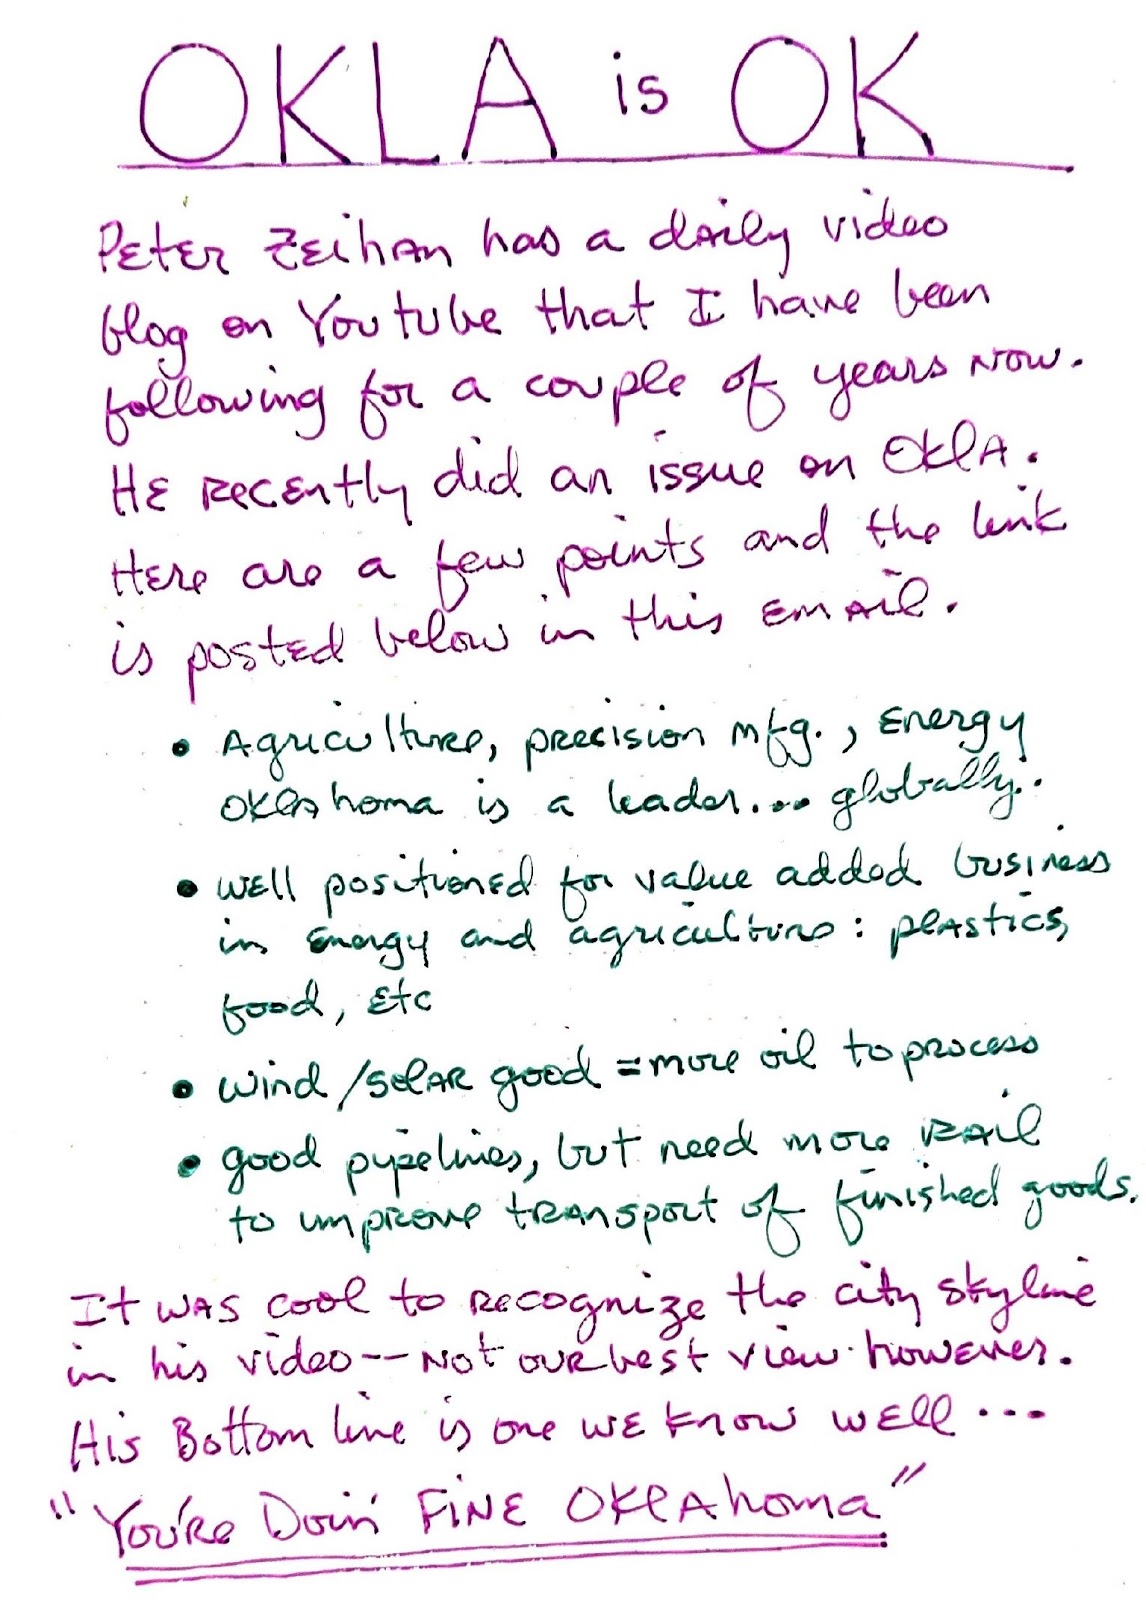 OKLA is OK
Peter Zeihan has a daily video
blog on YouTube that I have been
following for a couple of years now.
He recently did an issue on Okla.
Here are a few points and the link
is posted below in this email.
• Agriculture, precision mfg., energy
Oklahoma is a leader.... globally..
• well positioned for value added business
in energy and agriculture: plastics,
food, etc
• wind/solar good = more oil to process
• good pipelines, but need more rail
to improve transport of finished goods.
It was cool to recognize the city skyline
in his video -- not our best view however.
His Bottom line is one we know well ...
"You're Doin' FINE OKlahoma"